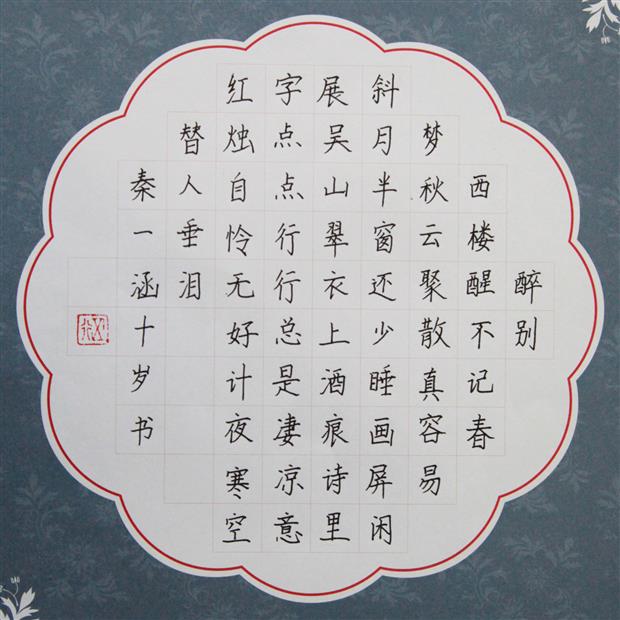 醉别
西楼醒不记春
梦秋云聚散真容易
斜月半窗还少睡画屏闲
展吴山翠衣上酒痕诗里
字点点行行总是凄凉意
红烛自怜无好计夜寒空
替人垂泪
秦一涵十岁书